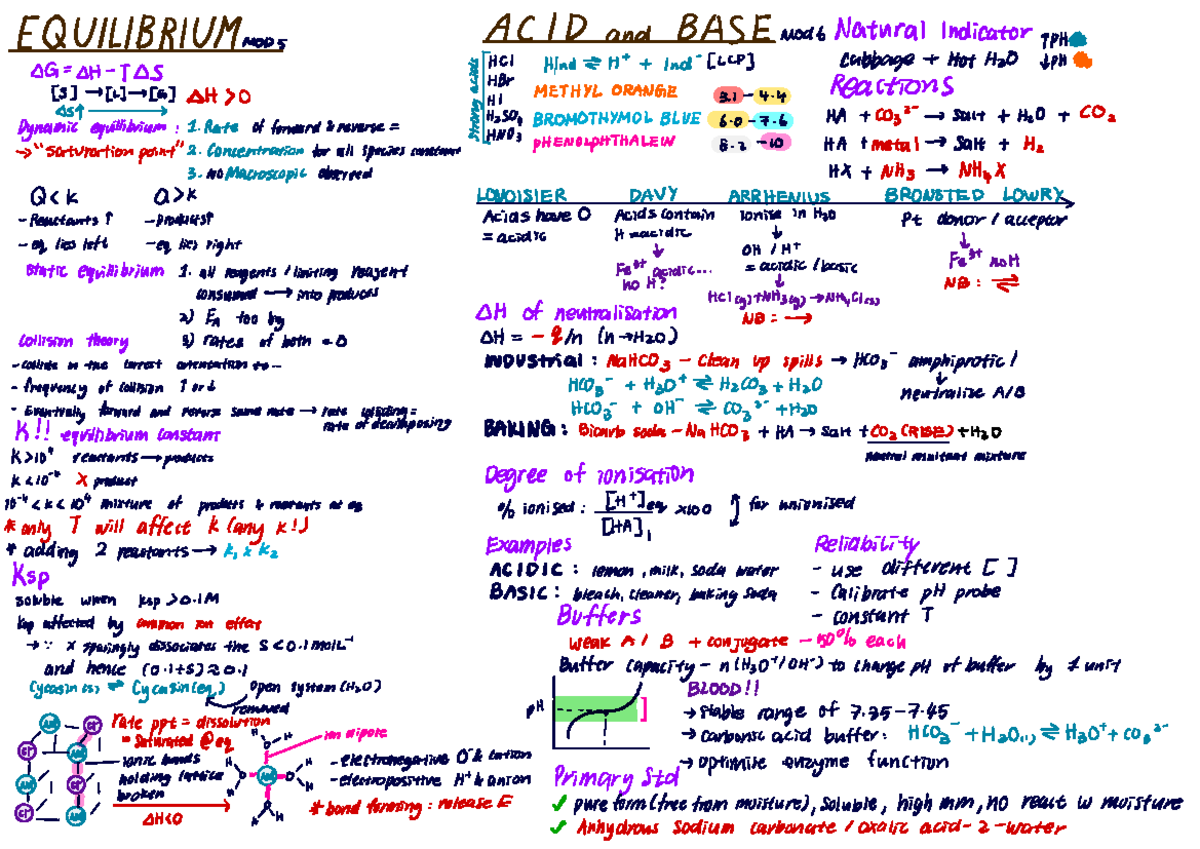 EQUILIBRIUM MOD 5
ΔG = ΔH - TΔS
[S] → [L] → [G] ΔH > 0
ΔS↑
Dynamic equilibrium : 1. Rate of forward & reverse =
→ "saturation point" 2. Concentration for all species constant
3. no Macroscopic observed
Q < K Q > K
- Reactants ↑ - products↑
- eq lies left - eq lies right
Static equilibrium 1. all reagents / limiting reagent
consumed → into products
2) EA too big
3) rates of both = 0
Collision theory
- collide in the correct orientation to --
- frequency of collision ↑ or ↓
- Eventually forward and reverse same rate → rate colliding =
rate of decomposing
K!! equilibrium constant
K > 10⁴ reactants → products
K < 10⁻⁴ X product
10⁻⁴ < K < 10⁴ mixture of products & reactants at eq
* only T will affect K (any K!)
* adding 2 reactants → K₁ x K₂
Ksp
soluble when Ksp > 0.1M
Ksp affected by common ion effect
→ ∵ X sparingly dissociates the S < 0.1 molL⁻¹
and hence (0.1+S) ≈ 0.1
Cycasin (s) ⇌ Cycasin (aq) open system (H₂O)
removed
rate ppt = dissolution
= Saturated @ eq
ionic bonds
holding lattice
broken
ΔH<0
ion dipole
- electronegative O⁻ & cation
- electropositive H⁺ & anion
* bond forming : release E
ACID and BASE MOD 6
Strong acids
HCl
HBr
HI
H₂SO₄
HNO₃
HInd ⇌ H⁺ + Ind⁻ [LCP]
METHYL ORANGE 3.1 - 4.4
BROMOTHYMOL BLUE 6.0 - 7.6
PHENOLPHTHALEIN 8.2 - 10
Natural Indicator ↑PH
Cabbage + Hot H₂O ↓PH
Reactions
HA + CO₃²⁻ → Salt + H₂O + CO₂
HA + metal → Salt + H₂
HX + NH₃ → NH₄X
LAVOISIER DAVY ARRHENIUS BRONSTED LOWRY
Acids have O Acids contain Ionise in H₂O Pt donor / acceptor
= acidic H = acidic
OH / H⁺
= acidic / basic
Fe³⁺ acidic...
no H?
HCl(g)+NH₃(g)→NH₄Cl(s)
NB: →
Fe³⁺ no H
NB : ⇌
ΔH of neutralisation
ΔH = -q/n (n→H₂O)
INDUSTRIAL : NaHCO₃ - Clean up spills → HCO₃⁻ amphiprotic /
HCO₃⁻ + H₃O⁺ ⇌ H₂CO₃ + H₂O neutralise A/B
HCO₃⁻ + OH⁻ ⇌ CO₃²⁻ + H₂O
BAKING : Bicarb soda - NaHCO₃ + HA → Salt + CO₂ (RISE) + H₂O
neutral resultant mixture
Degree of ionisation
% ionised : [H⁺]eq / [HA]i x100 for unionised
Examples
ACIDIC : lemon, milk, soda water
BASIC : bleach, cleaner, baking soda
Reliability
- use different [ ]
- Calibrate pH probe
- constant T
Buffers
weak A / B + conjugate - 50% each
Buffer capacity - n(H₃O⁺/OH⁻) to change pH of buffer by 1 unit
pH
BLOOD!!
→ stable range of 7.35-7.45
→ carbonic acid buffer : HCO₃⁻ + H₂O(l) ⇌ H₃O⁺ + CO₃²⁻
→ optimise enzyme function
Primary Std
✓ pure form (free from moisture), soluble, high mm, no react w moisture
✓ Anhydrous Sodium carbonate / oxalic acid-2-water